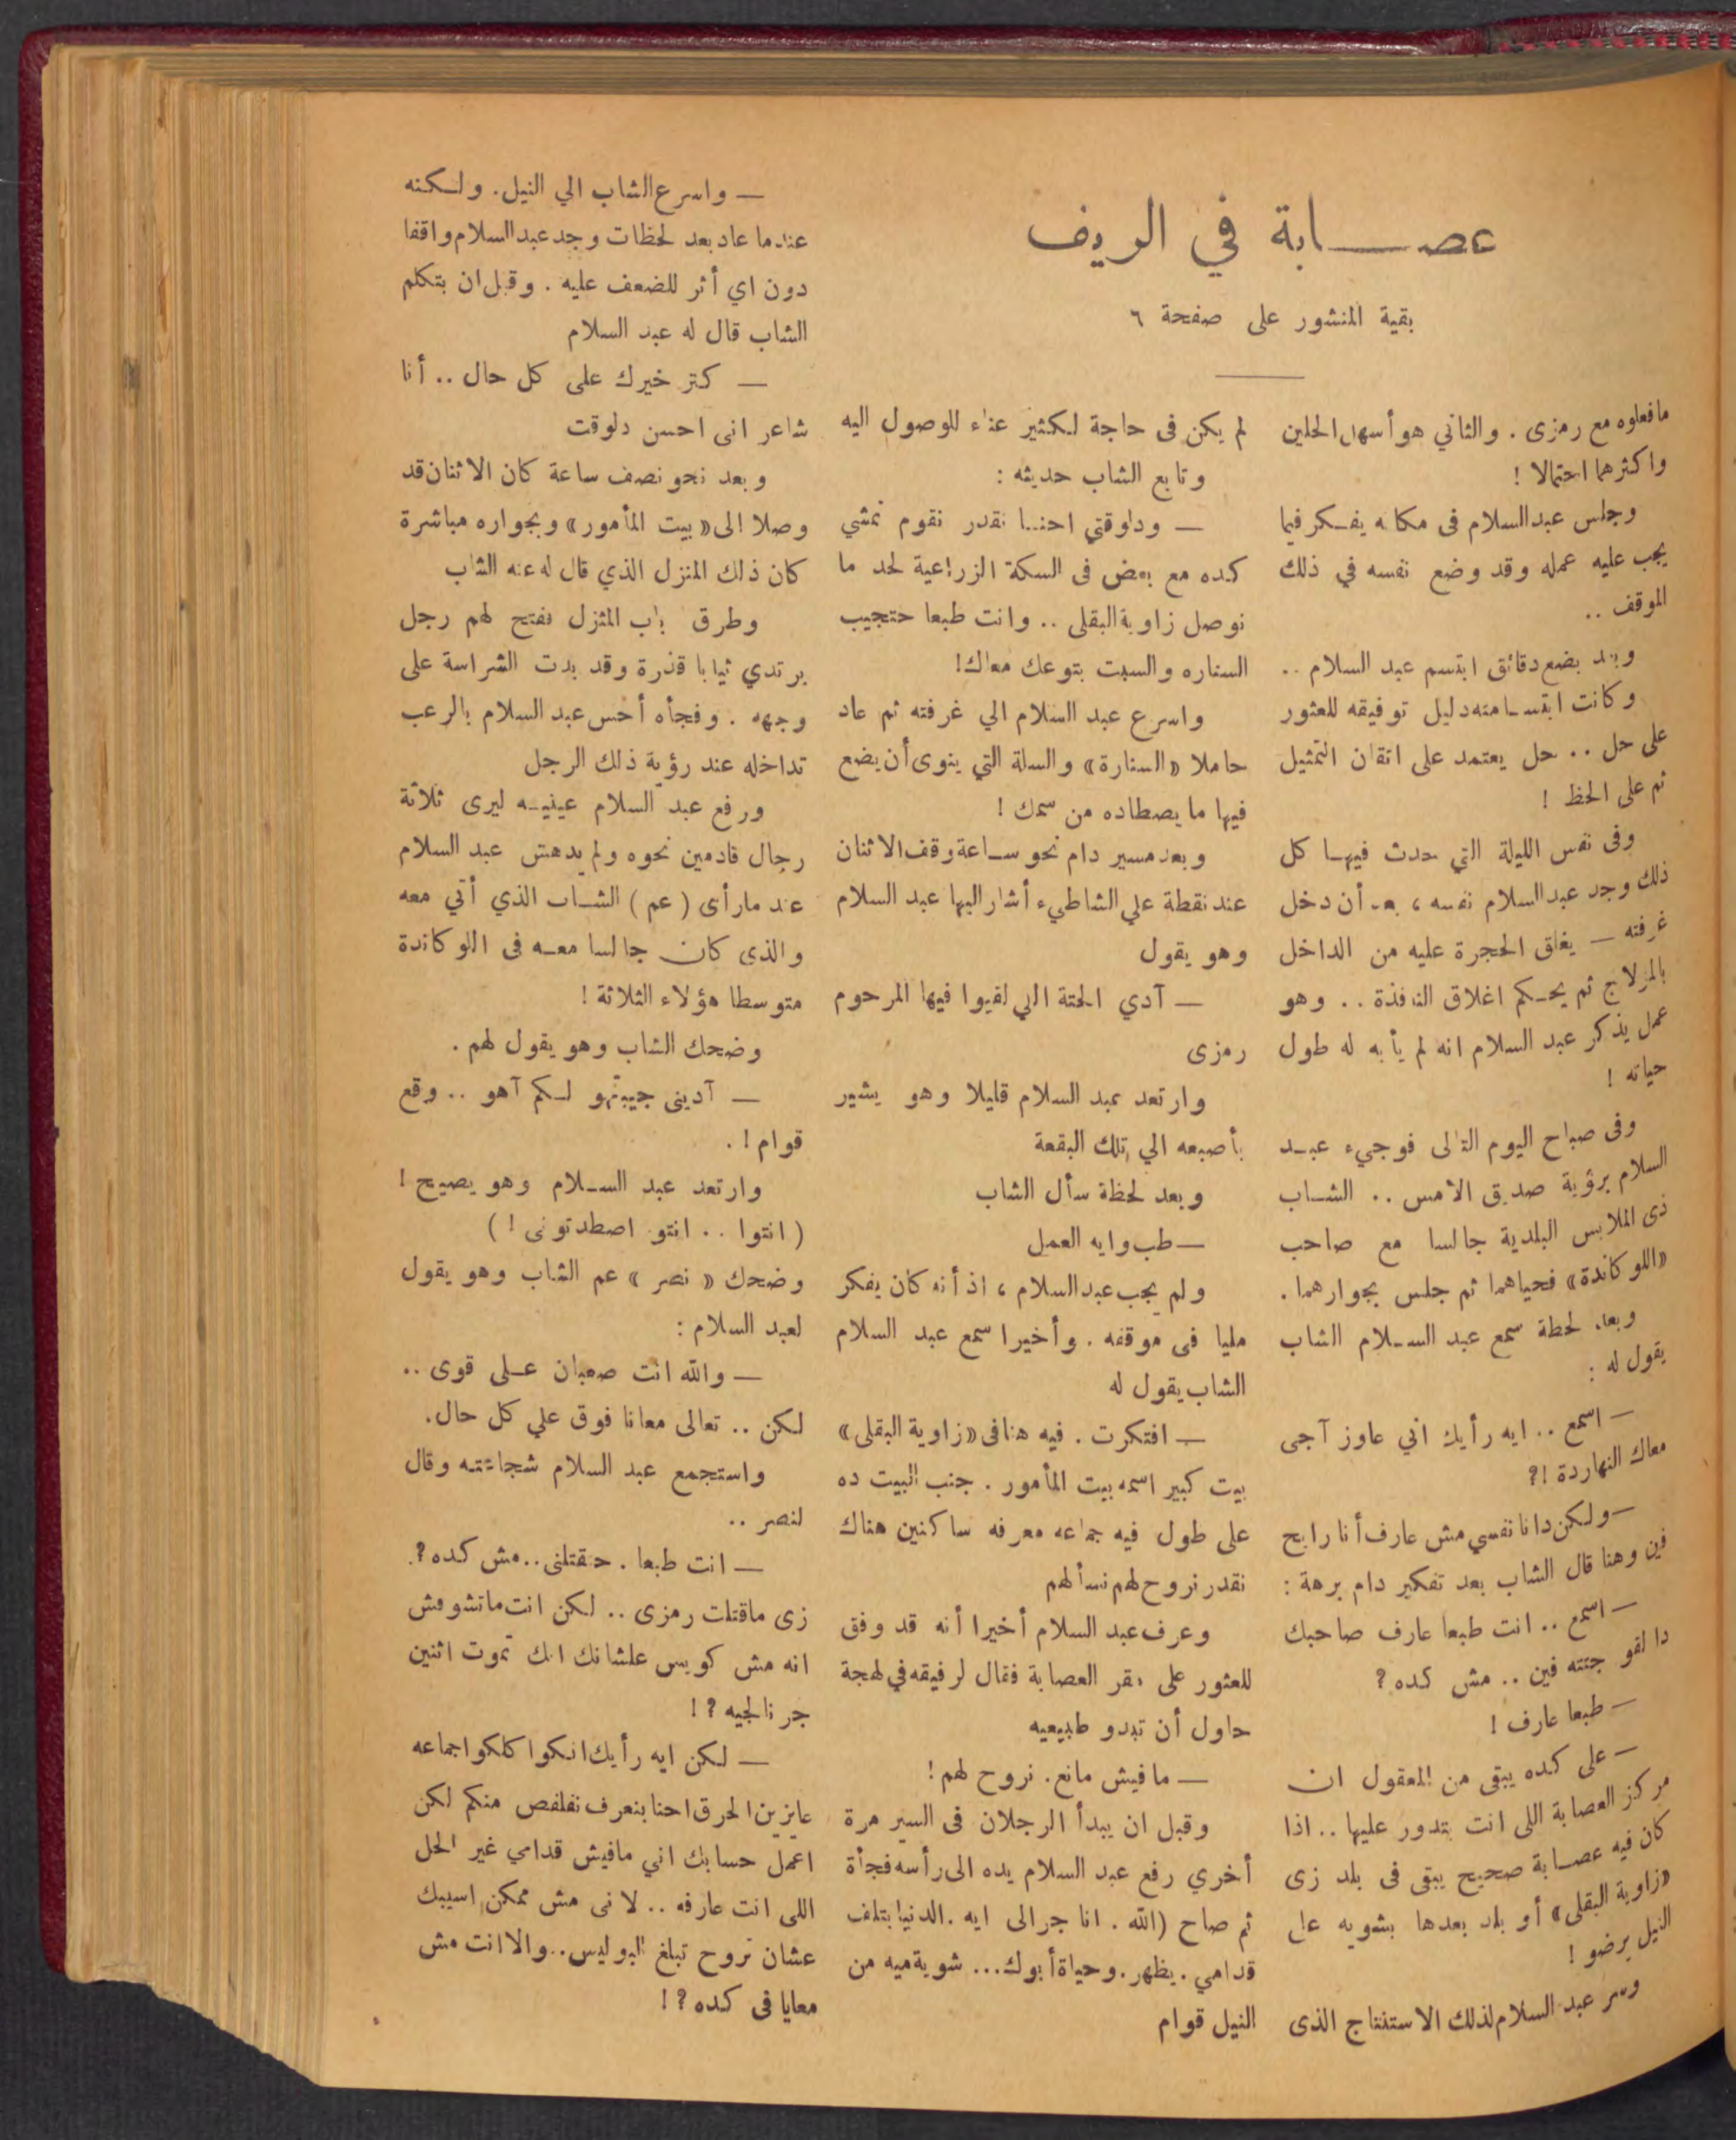 عصـــابة في الريف
بقية المنشور على صفحة ٦
مافعلوه مع رمزى . والثاني هو أسهل الحلين
واكثرهما احتمالا !
وجلس عبدالسلام فى مكانه يفـكر فيما
يجب عليه عمله وقد وضع نفسه في ذلك
الموقف ..
وبعد بضع دقائق ابتسم عبد السلام ..
وكانت ابتسـامته دليل توفيقه للعثور
على حل .. حل يعتمد على اتقان التمثيل
ثم على الحظ !
وفى نفس الليلة التي حدث فيهـا كل
ذلك وجد عبدالسلام نفسه ، بعد أن دخل
غرفته — يغلق الحجرة عليه من الداخل
بالمزلاج ثم يحـكم اغلاق النافذة .. وهو
عمل يذكر عبد السلام انه لم يأبه له طول
حياته !
وفى صباح اليوم التالى فوجيء عبـد
السلام برؤية صديق الأمس .. الشـاب
ذى الملابس البلدية جالسا مع صاحب
«اللوكاندة» فحياهما ثم جلس بجوارهما .
وبعد لحظة سمع عبد السـلام الشاب
يقول له :
— اسمع .. ايه رأيك اني عاوز آجى
معاك النهاردة !؟
— ولكن دانا نفسي مش عارف أنا رايح
فين وهنا قال الشاب بعد تفكير دام برهة :
— اسمع .. انت طبعا عارف صاحبك
دا لقو جثته فين .. مش كده ؟
— طبعا عارف !
— على كده يبقى من المعقول ان
مركز العصابة اللى انت بتدور عليها .. اذا
كان فيه عصـابة صحيح يبقى فى بلد زى
«زاوية البقلى» أو بلد بعدها بشويه على
النيل برضو !
وسر عبد السلام لذلك الاستنتاج الذى
لم يكن فى حاجة لـكثير عناء للوصول اليه
وتابع الشاب حديثه :
— ودلوقتي احنـا نقدر نقوم نمشي
كده مع بعض فى السكة الزراعية لحد ما
نوصل زاوية البقلى .. وانت طبعا حتجيب
السناره والسبت بتوعك معاك !
واسرع عبد السلام الي غرفته ثم عاد
حاملا «السنارة» والسلة التي ينوى أن يضع
فيها ما يصطاده من سمك !
وبعد مسير دام نحو سـاعة وقف الاثنان
عند نقطة علي الشاطيء أشار اليها عبد السلام
وهو يقول
— آدي الحتة اللي لقيوا فيها المرحوم
رمزى
وارتعد عبد السلام قليلا وهو يشير
بأصبعه الي تلك البقعة
وبعد لحظة سأل الشاب
— طب وايه العمل
ولم يجب عبدالسلام ، اذ أنه كان يفكر
مليا فى موقفه . وأخيرا سمع عبد السلام
الشاب يقول له
— افتكرت . فيه هنا فى «زاوية البقلى»
بيت كبير اسمه بيت المأمور . جنب البيت ده
على طول فيه جماعه معرفه ساكنين هناك
نقدر نروح لهم نسألهم
وعرف عبد السلام أخيرا أنه قد وفق
للعثور على مقر العصابة فقال لرفيقه في لهجة
حاول أن تبدو طبيعيه
— مافيش مانع . نروح لهم !
وقبل ان يبدأ الرجلان فى السير مرة
أخري رفع عبد السلام يده الى رأسه فجأة
ثم صاح (الله . انا جرالى ايه . الدنيا بتلف
قدامي . يظهر . وحياة أبوك ... شوية ميه من
النيل قوام
— واسرع الشاب الي النيل . ولـكنه
عندما عاد بعد لحظات وجد عبدالسلام واقفا
دون اي أثر للضعف عليه . وقبل ان يتكلم
الشاب قال له عبد السلام
— كتر خيرك على كل حال .. أنا
شاعر انى احسن دلوقت
وبعد نحو نصف ساعة كان الاثنان قد
وصلا الى «بيت المأمور» وبجواره مباشرة
كان ذلك المنزل الذي قال له عنه الشاب
وطرق باب المنزل ففتح لهم رجل
يرتدي ثيابا قذرة وقد بدت الشراسة على
وجهه . وفجأه أحس عبد السلام بالرعب
تداخله عند رؤية ذلك الرجل
ورفع عبد السلام عينيـه ليرى ثلاثة
رجال قادمين نحوه ولم يدهش عبد السلام
عند ما رأى ( عم ) الشـاب الذي أتي معه
والذى كان جالسا معـه فى اللوكاندة
متوسطا هؤلاء الثلاثة !
وضحك الشاب وهو يقول لهم .
— آديني جيبتهو لـكم آهو .. وقع
قوام ! .
وارتعد عبد السـلام وهو يصيح !
( انتوا .. انتو اصطدتونى ! )
وضحك « نصر » عم الشاب وهو يقول
لعبد السلام :
— والله انت صعبان عـلى قوى ..
لكن .. تعالى معانا فوق علي كل حال .
واستجمع عبد السلام شجاعته وقال
لنصر ..
— انت طبعا . حتقتلنى .. مش كده ؟
زى ماقتلت رمزى .. لكن انت ماتشوفش
انه مش كويس علشانك انك تموت اثنين
جرنالجيه ؟ !
— لكن ايه رأيك انكوا كلكوا جماعه
عايزين الحرق احنا بنعرف نفلفص منكم لكن
اعمل حسابك اني مافيش قدامي غير الحل
اللى انت عارفه .. لانى مش ممكن اسيبك
عشان تروح تبلغ البوليس .. والا انت مش
معايا فى كده ؟ !